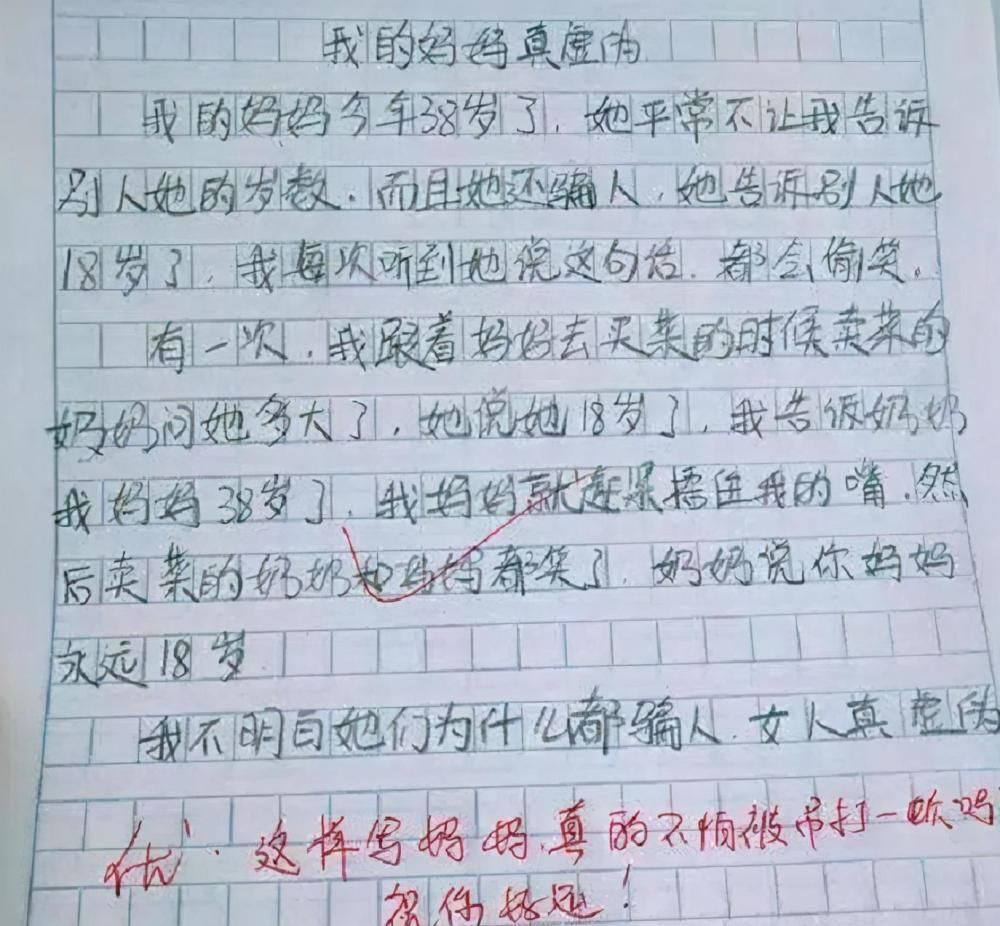 我的妈妈真虚伪
我的妈妈今年38岁了,她平常不让我告诉
别人她的岁数.而且她还骗人,她告诉别人她
18岁了,我每次听到她说这句话.都会偷笑。
有一次,我跟着妈妈去买菜的时候卖菜的
奶奶问她多大了,她说她18岁了,我告诉奶奶
我妈妈38岁了,我妈妈就赶紧捂住我的嘴.然
后卖菜的奶奶和妈妈都笑了.奶奶说你妈妈
永远18岁
我不明白她们为什么都骗人.女人真虚伪
优.这样写妈妈,真的不怕被吊打一顿吗
祝你好运!